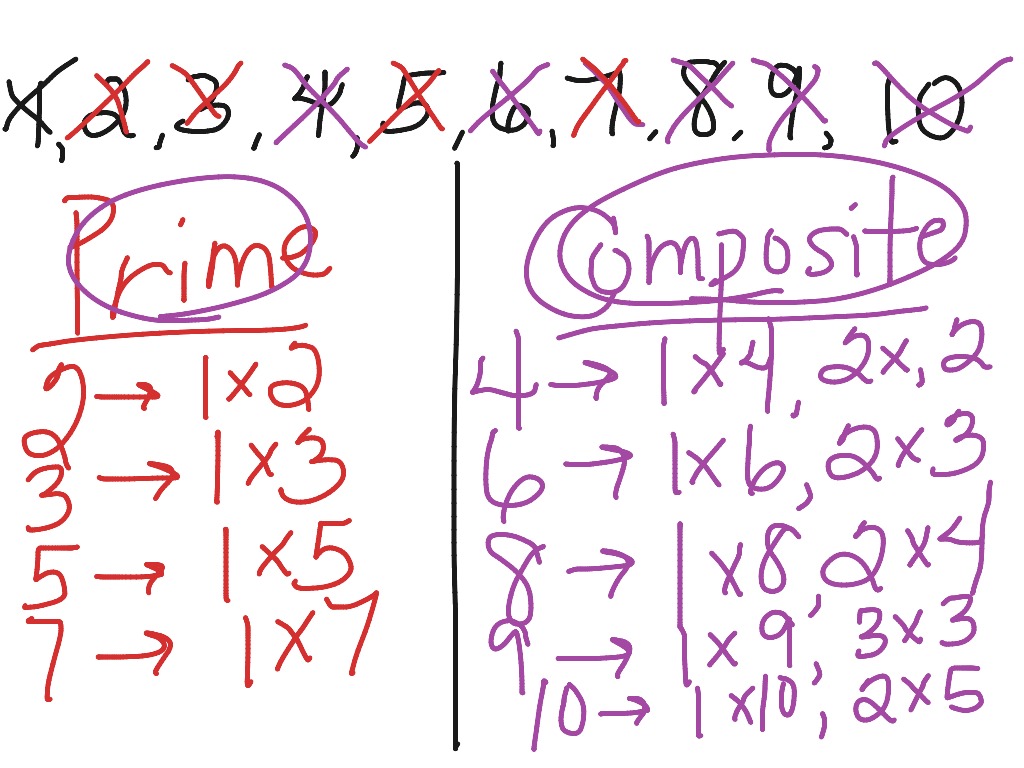 1, 2, 3, 4, 5, 6, 7, 8, 9, 10
Prime
2 → 1 x 2
3 → 1 x 3
5 → 1 x 5
7 → 1 x 7
Composite
4 → 1 x 4, 2 x, 2
6 → 1 x 6, 2 x 3
8 → 1 x 8, 2 x 4
9 → 1 x 9, 3 x 3
10 → 1 x 10, 2 x 5